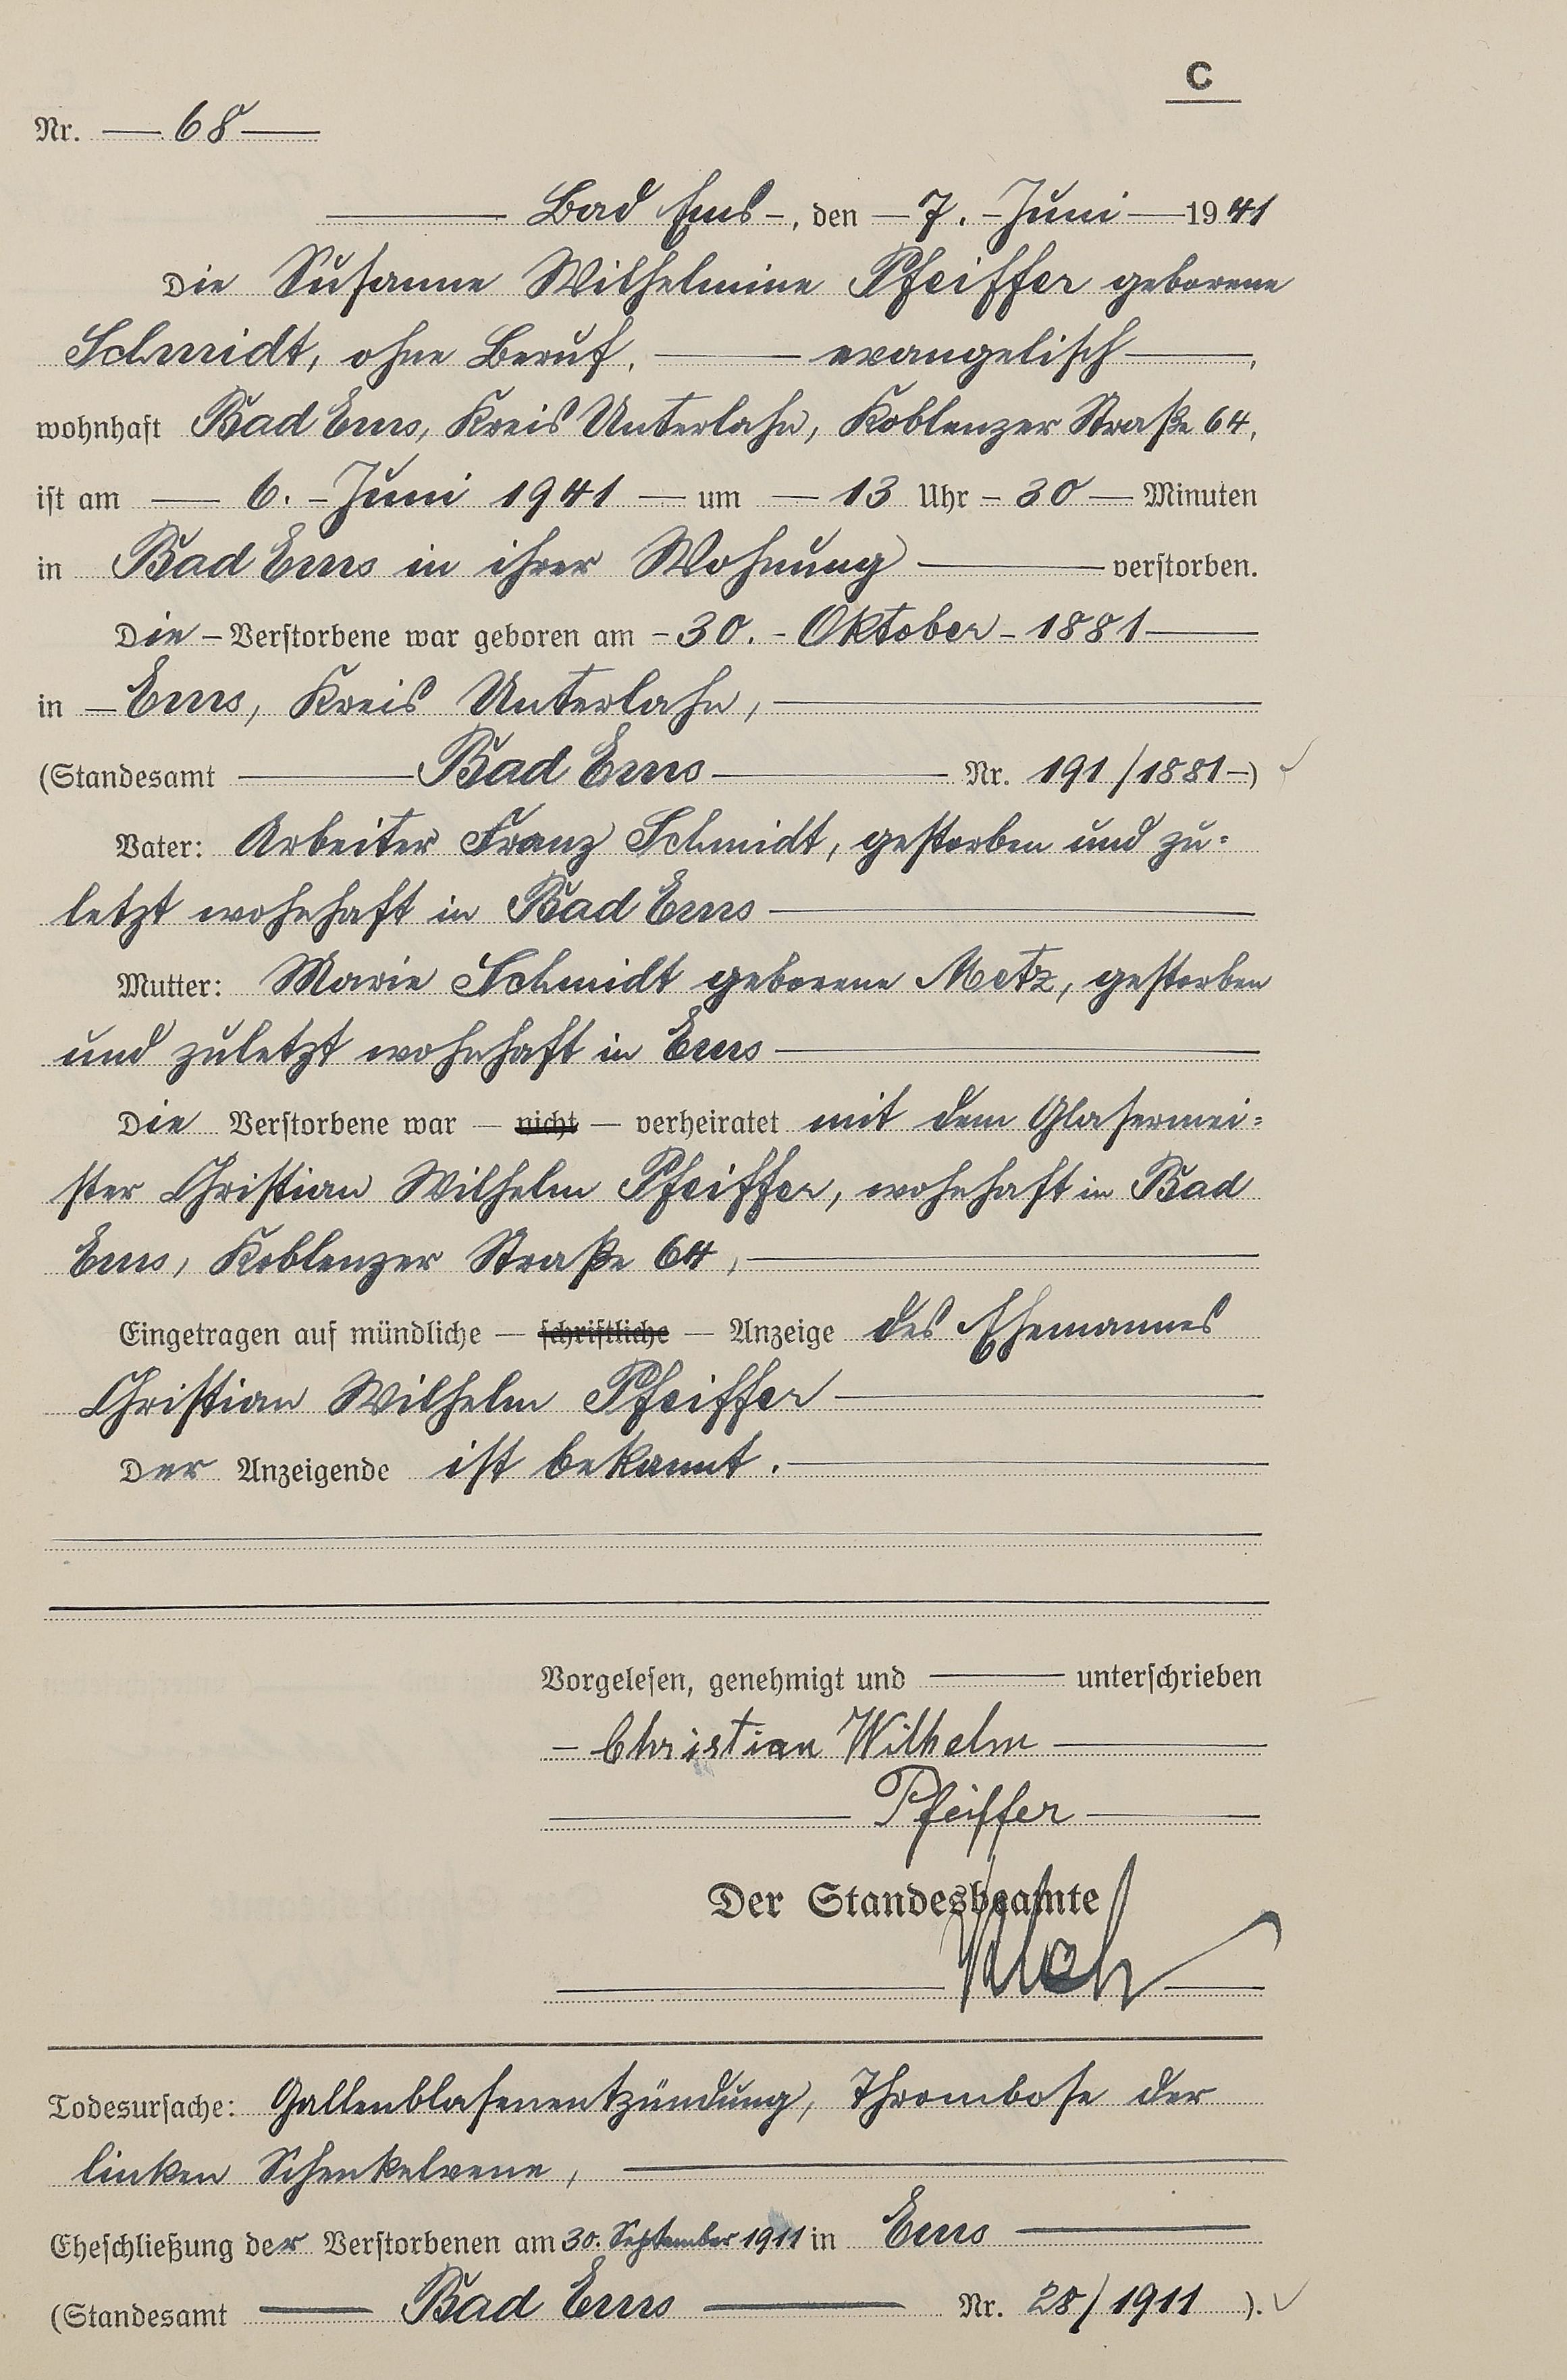 C
Nr. 68
Bad Ems, den 7. Juni 1941
Die Susanne Wilhelmine Pfeiffer geborene
Schmidt, ohne Beruf, evangelisch,
wohnhaft Bad Ems, Kreis Unterlahn, Koblenzer Straße 64,
ist am 6. Juni 1941 um 13 Uhr 30 Minuten
in Bad Ems in ihrer Wohnung verstorben.
Die Verstorbene war geboren am 30. Oktober 1881
in Ems, Kreis Unterlahn,
(Standesamt Bad Ems Nr. 191/1881)
Vater: Arbeiter Franz Schmidt, gestorben und zu=
letzt wohnhaft in Bad Ems
Mutter: Marie Schmidt geborene Metz, gestorben
und zuletzt wohnhaft in Ems
Die Verstorbene war — nicht — verheiratet mit dem Glasermei=
ster Christian Wilhelm Pfeiffer, wohnhaft in Bad
Ems, Koblenzer Straße 64,
Eingetragen auf mündliche — schriftliche — Anzeige des Ehemannes
Christian Wilhelm Pfeiffer
Der Anzeigende ist bekannt.
Vorgelesen, genehmigt und unterschrieben
Christian Wilhelm
Pfeiffer
Der Standesbeamte
Todesursache: Gallenblasenentzündung, Thrombose der
linken Schenkelvene,
Eheschließung der Verstorbenen am 30. September 1911 in Ems
(Standesamt Bad Ems Nr. 28/1911).